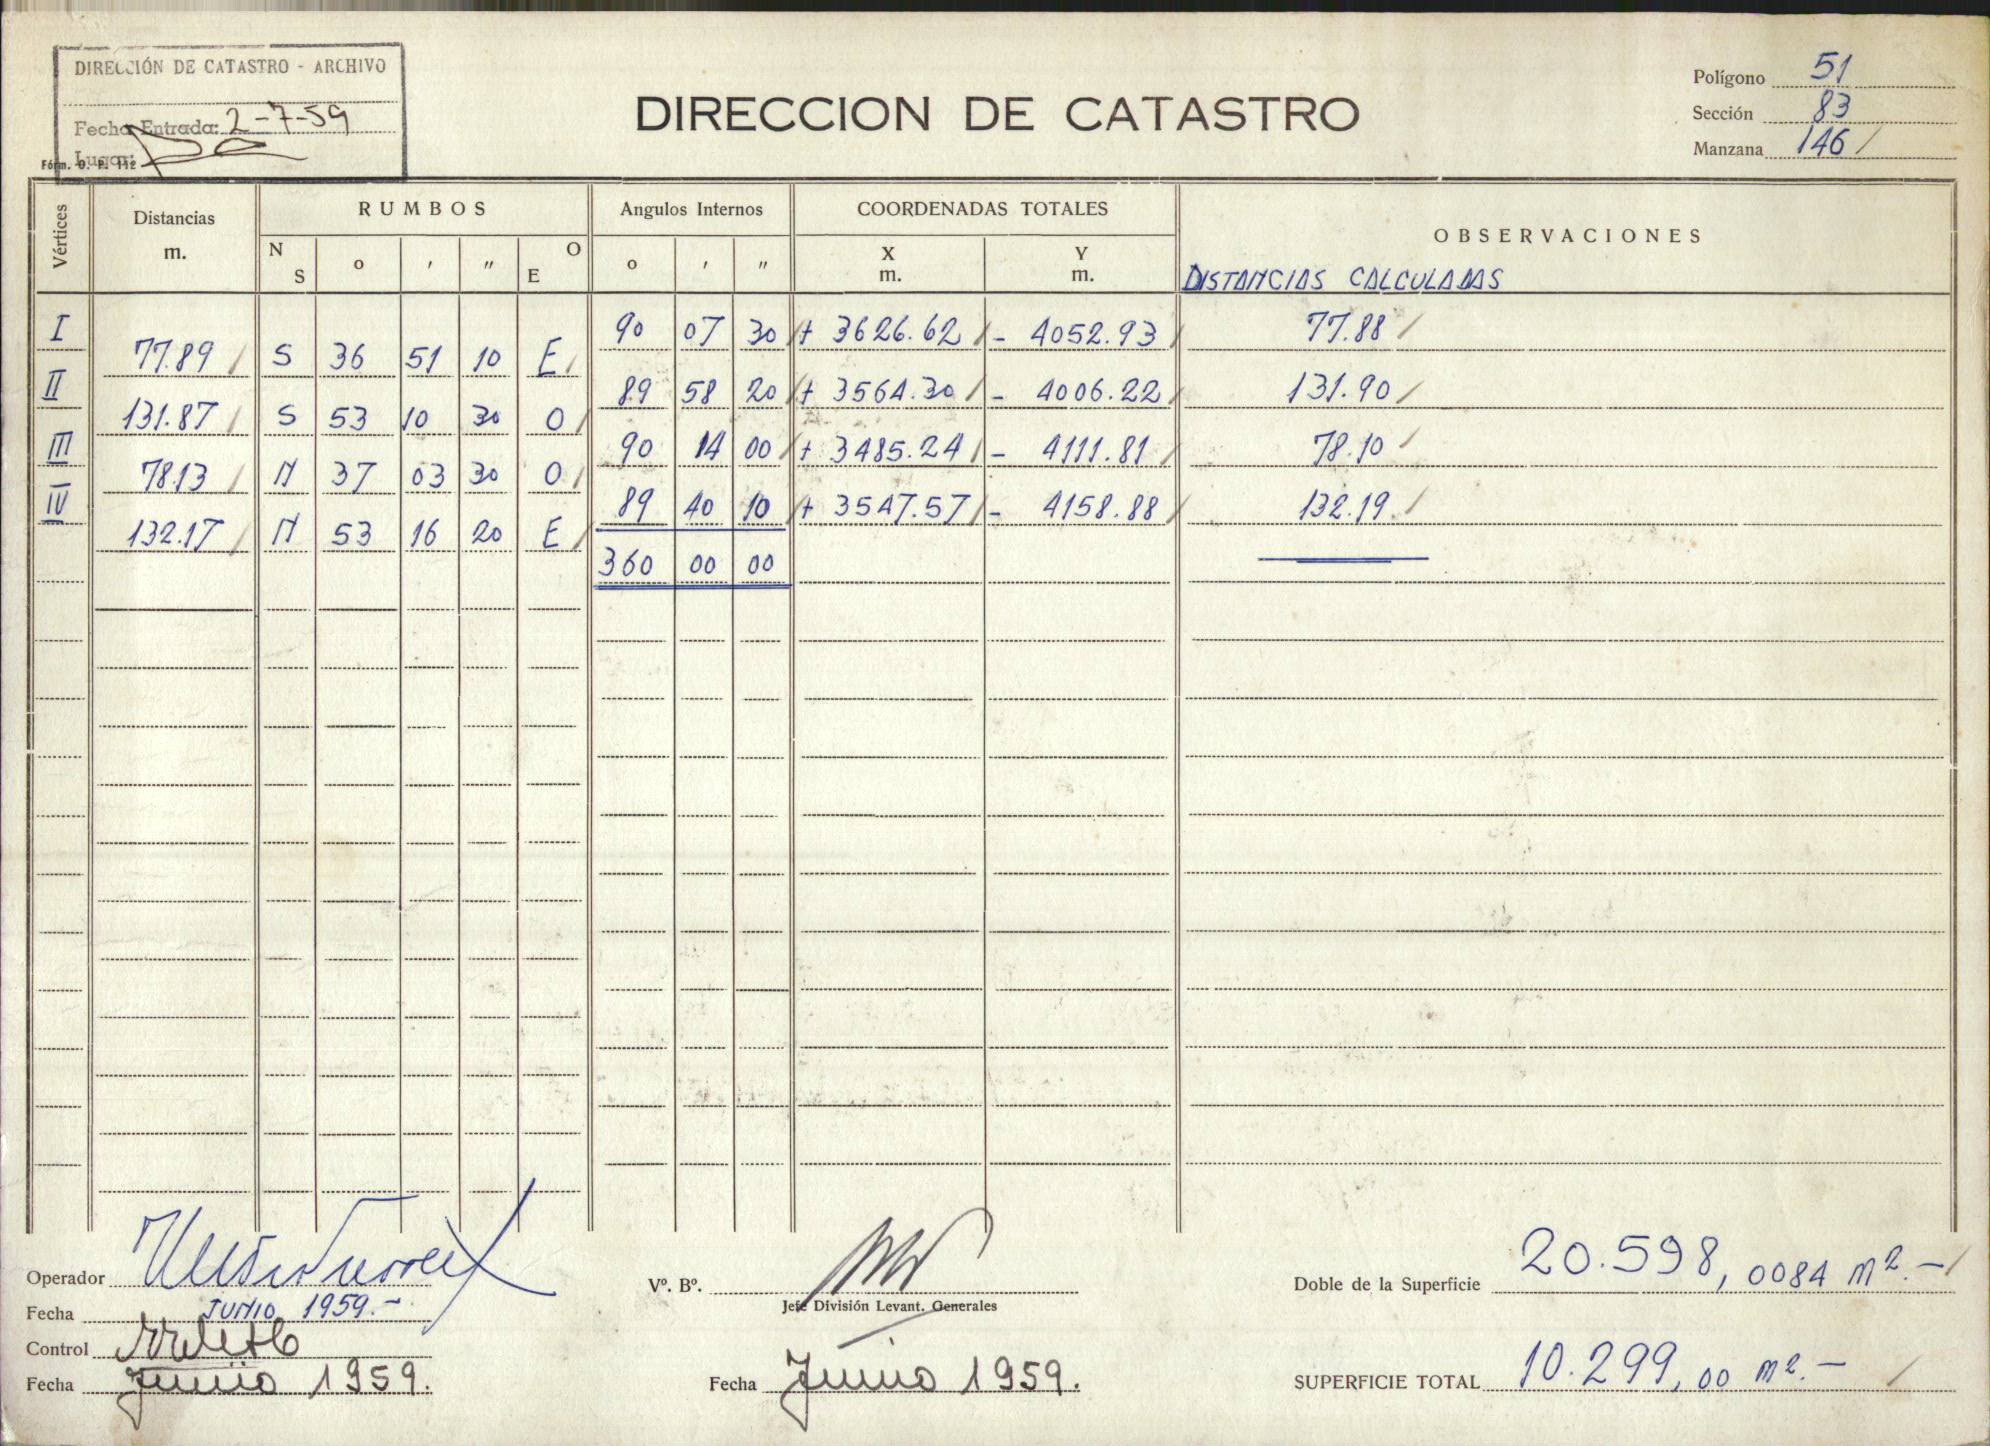 DIRECCIÓN DE CATASTRO - ARCHIVO
Fecha Entrada: 2-7-59
Lugar:
Fórm. O. P. 112
DIRECCION DE CATASTRO
Polígono 51
Sección 83
Manzana 146
Vértices Distancias m. RUMBOS N S o ' " E O Angulos Internos o ' " COORDENADAS TOTALES X m. Y m. OBSERVACIONES
DISTANCIAS CALCULADAS
I 90 07 30 + 3626.62 - 4052.93 77.88
77.89 S 36 51 10 E
II 89 58 20 + 3564.30 - 4006.22 131.90
131.87 S 53 10 30 O
III 90 14 00 + 3485.24 - 4111.81 78.10
78.13 N 37 03 30 O
IV 89 40 10 + 3547.57 - 4158.88 132.19
132.17 N 53 16 20 E
360 00 00
Operador
Fecha JUNIO 1959.-
Control
Fecha Junio 1959.
Vº. Bº.
Jefe División Levant. Generales
Fecha Junio 1959.
Doble de la Superficie 20.598,0084 m2.-
SUPERFICIE TOTAL 10.299,00 m2.-